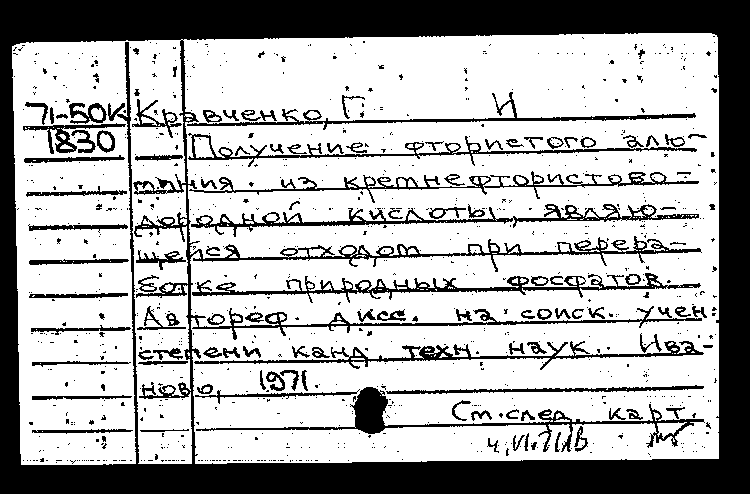 71-50К Кравченко, Г И
1830 Получение фтористого алю-
миния из кремнефтористово-
дородной кислоты, являю-
щейся отходом при перера-
ботке природных фосфатов.
Автореф. дисс. на соиск. учен.
степени канд. техн. наук. Ива-
ново, 1971.
См. след. карт.